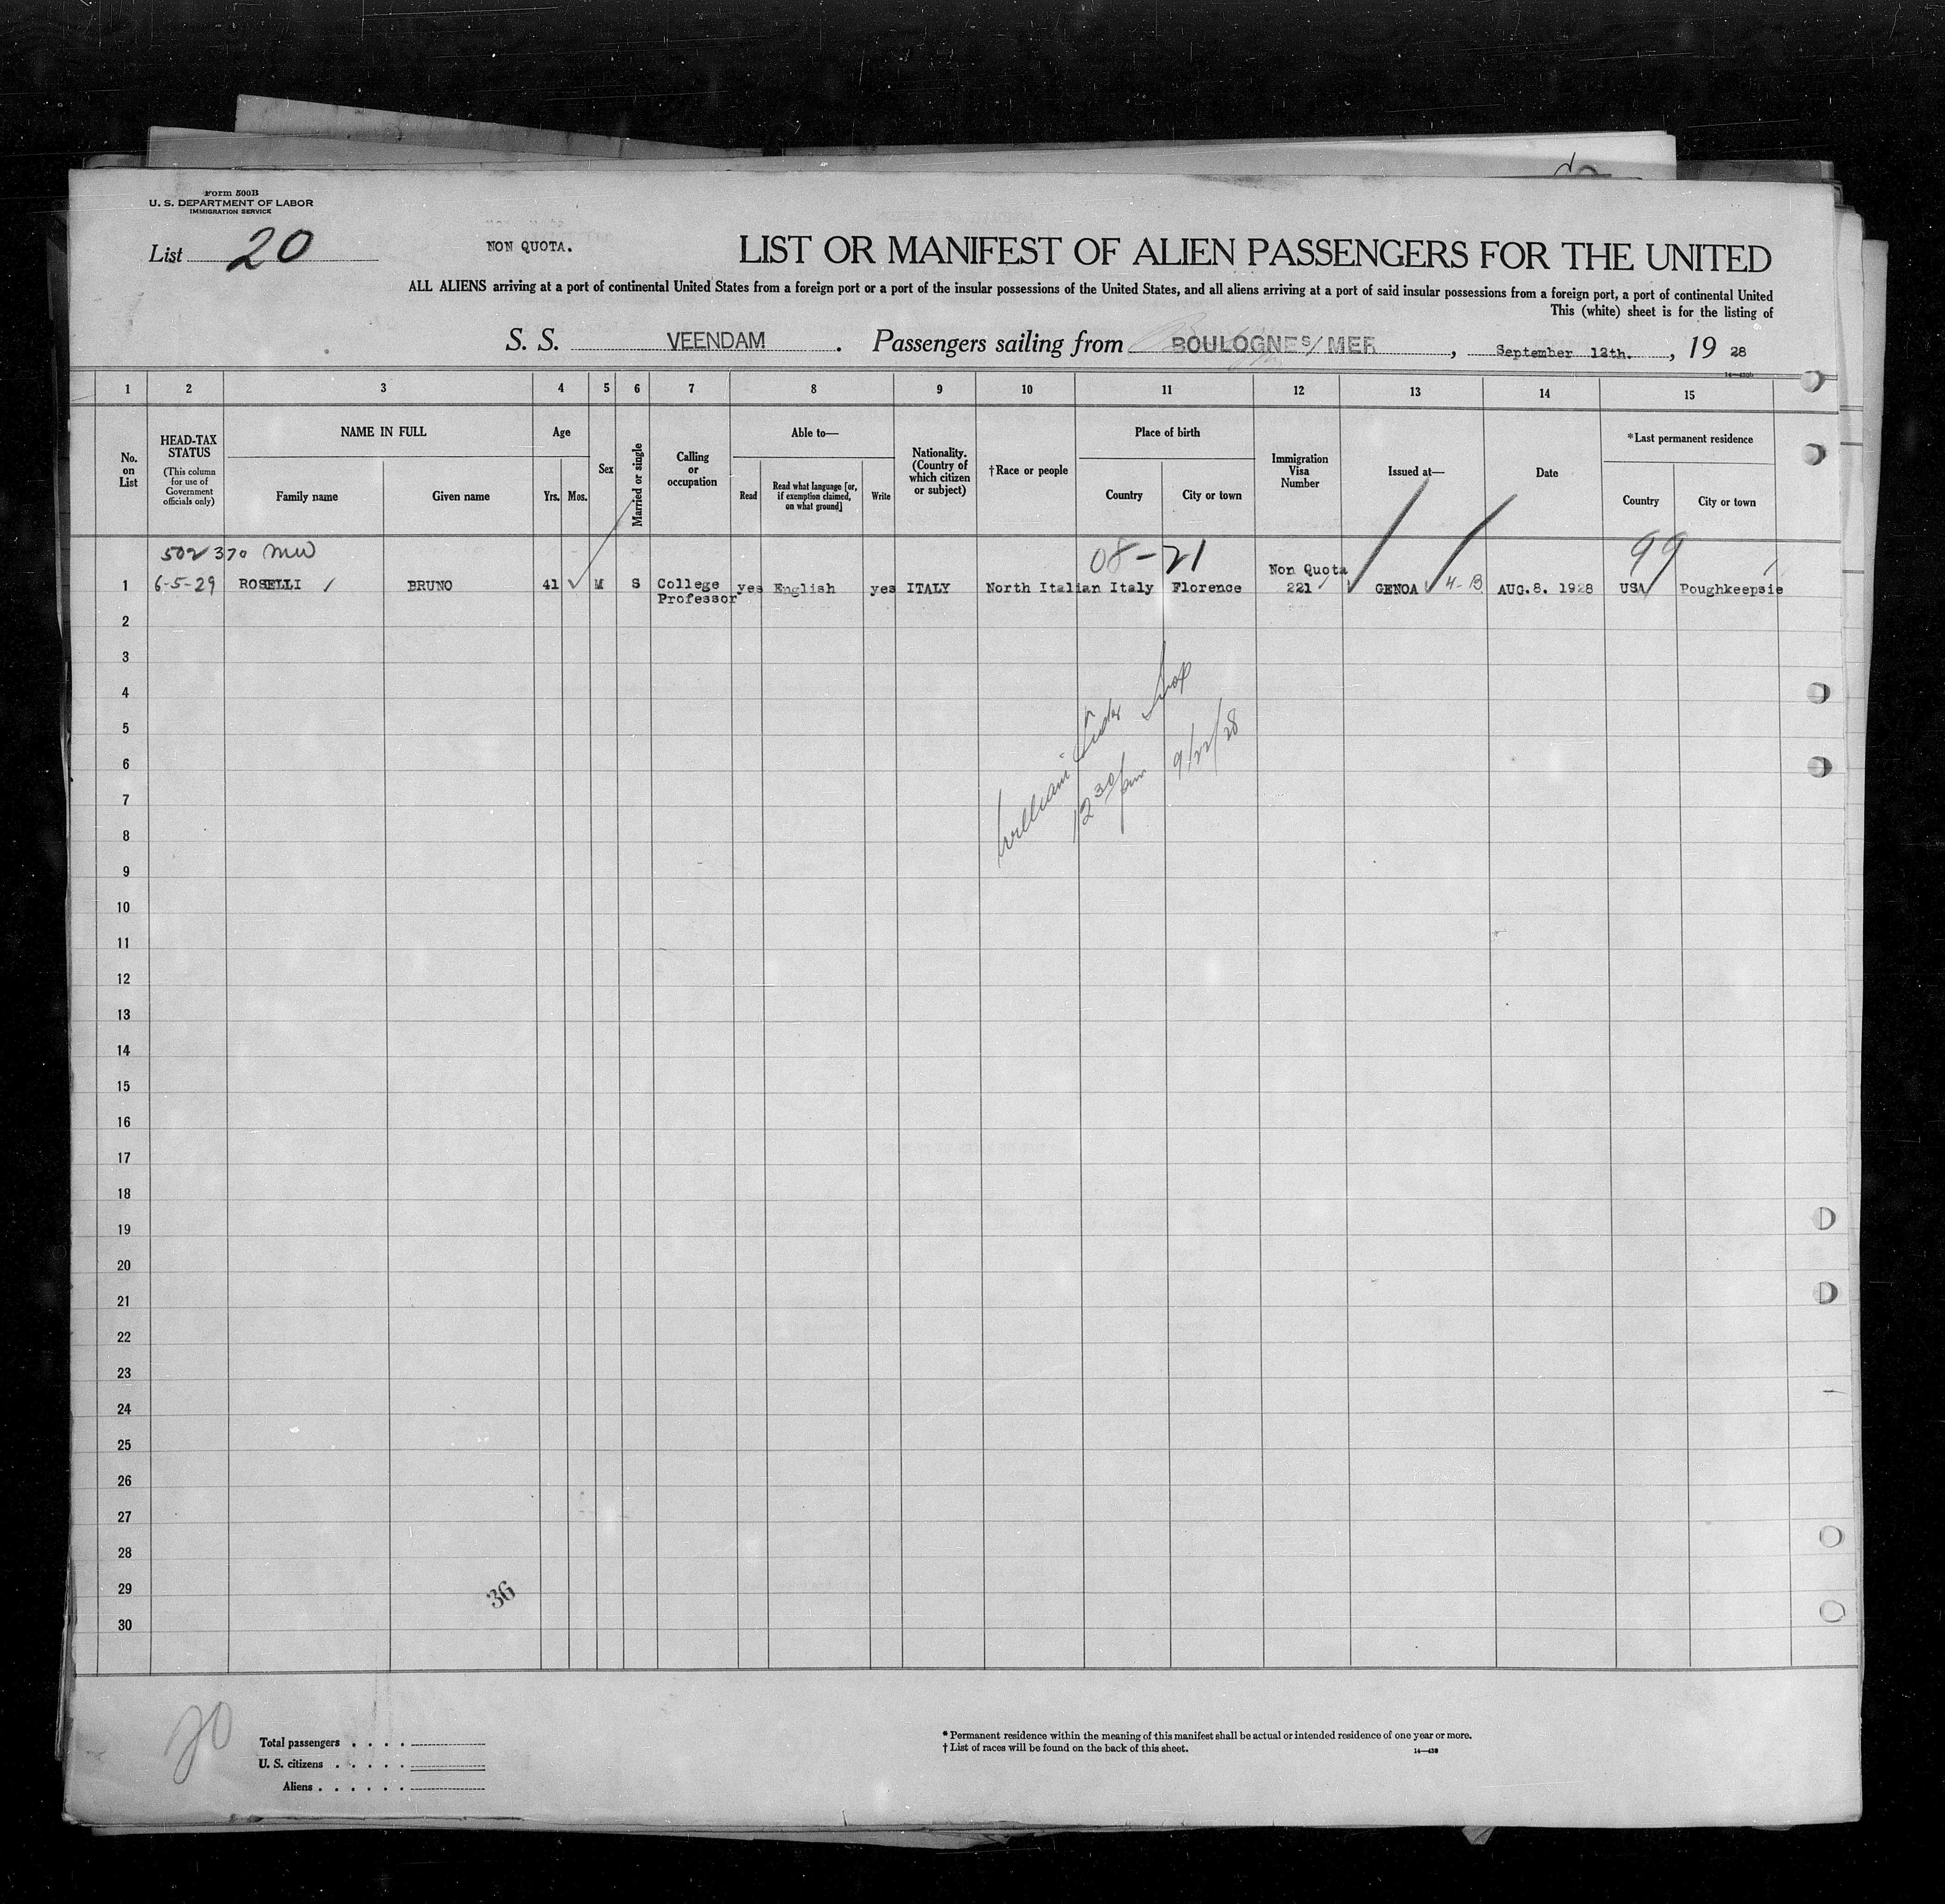 Form 500B
U. S. DEPARTMENT OF LABOR
IMMIGRATION SERVICE
List 20
NON QUOTA.
LIST OR MANIFEST OF ALIEN PASSENGERS FOR THE UNITED
ALL ALIENS arriving at a port of continental United States from a foreign port or a port of the insular possessions of the United States, and all aliens arriving at a port of said insular possessions from a foreign port, a port of continental United
This (white) sheet is for the listing of
S. S. VEENDAM . Passengers sailing from BOULOGNE S/MER , September 12th. , 19 28
1 2 3 4 5 6 7 8 9 10 11 12 13 14 15
No. on List
HEAD-TAX STATUS
(This column for use of Government officials only)
NAME IN FULL
Family name
Given name
Age
Yrs.
Mos.
Sex
Married or single
Calling or occupation
Able to—
Read
Read what language [or, if exemption claimed, on what ground]
Write
Nationality. (Country of which citizen or subject)
†Race or people
Place of birth
Country
City or town
Immigration Visa Number
Issued at—
Date
*Last permanent residence
Country
City or town
502370 MW
08-21
99
1 6-5-29 ROSELLI BRUNO 41 M S College Professor yes English yes ITALY North Italian Italy Florence Non Quota 221 GENOA 4-B AUG.8. 1928 USA Poughkeepsie
2
3
4
5
6
William
12 30 pm 9/22/28
7
8
9
10
11
12
13
14
15
16
17
18
19
20
21
22
23
24
25
26
27
28
29
30
36
20
Total passengers . . . .
U. S. citizens . . . . .
Aliens . . . . . .
* Permanent residence within the meaning of this manifest shall be actual or intended residence of one year or more.
† List of races will be found on the back of this sheet.